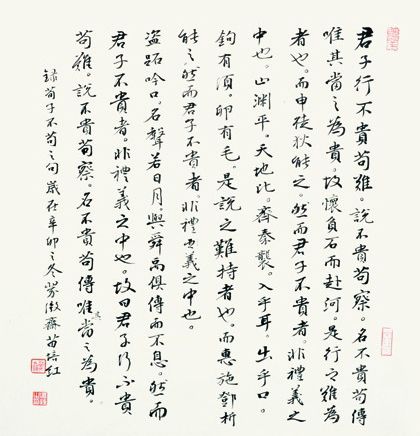 君子行不貴苟難。說不貴苟察。名不貴苟傳
唯其當之為貴。故懷負石而赴河。是行之難為
者也。而申徒狄能之。然而君子不貴者。非禮義之
中也。山淵平。天地比。齊秦襲。入乎耳。出乎口。
鉤有須。卵有毛。是說之難持者也。而惠施鄧析
能之。然而君子不貴者非禮義之中也。
盜跖吟口。名聲若日月。與舜禹俱傳而不息。然而
君子不貴者。非禮義之中也。故曰君子行不貴
苟難。說不貴苟察。名不貴苟傳唯當之為貴。
錄荀子不苟之句歲在辛卯之冬齋苗培紅